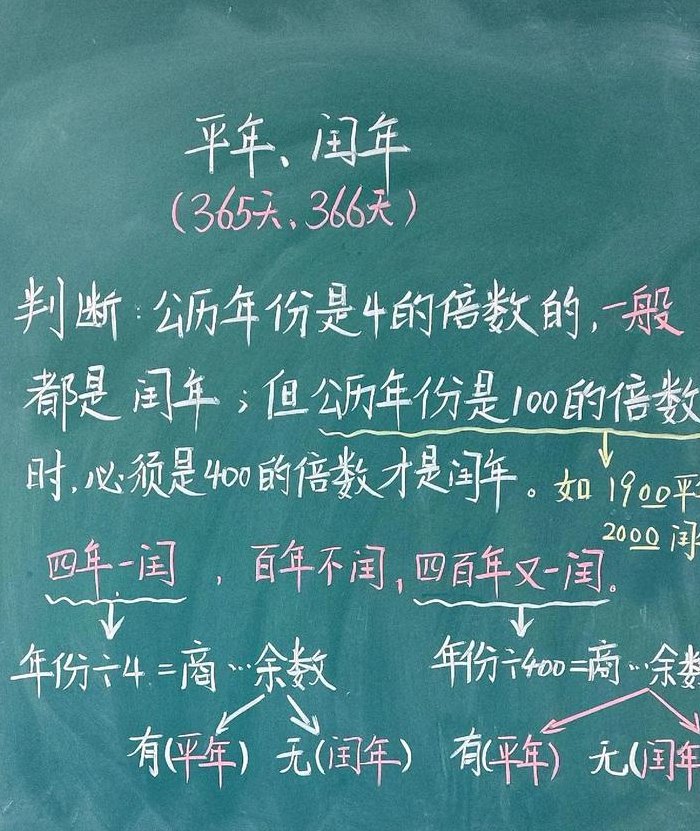 平年、闰年
(365天、366天)
判断:公历年份是4的倍数的,一般
都是闰年;但公历年份是100的倍数
时,必须是400的倍数才是闰年。如1900平年
2000闰
四年一闰,百年不闰,四百年又一闰。
年份÷4=商…余数 年份÷400=商…余数
有(平年) 无(闰年) 有(平年) 无(闰年